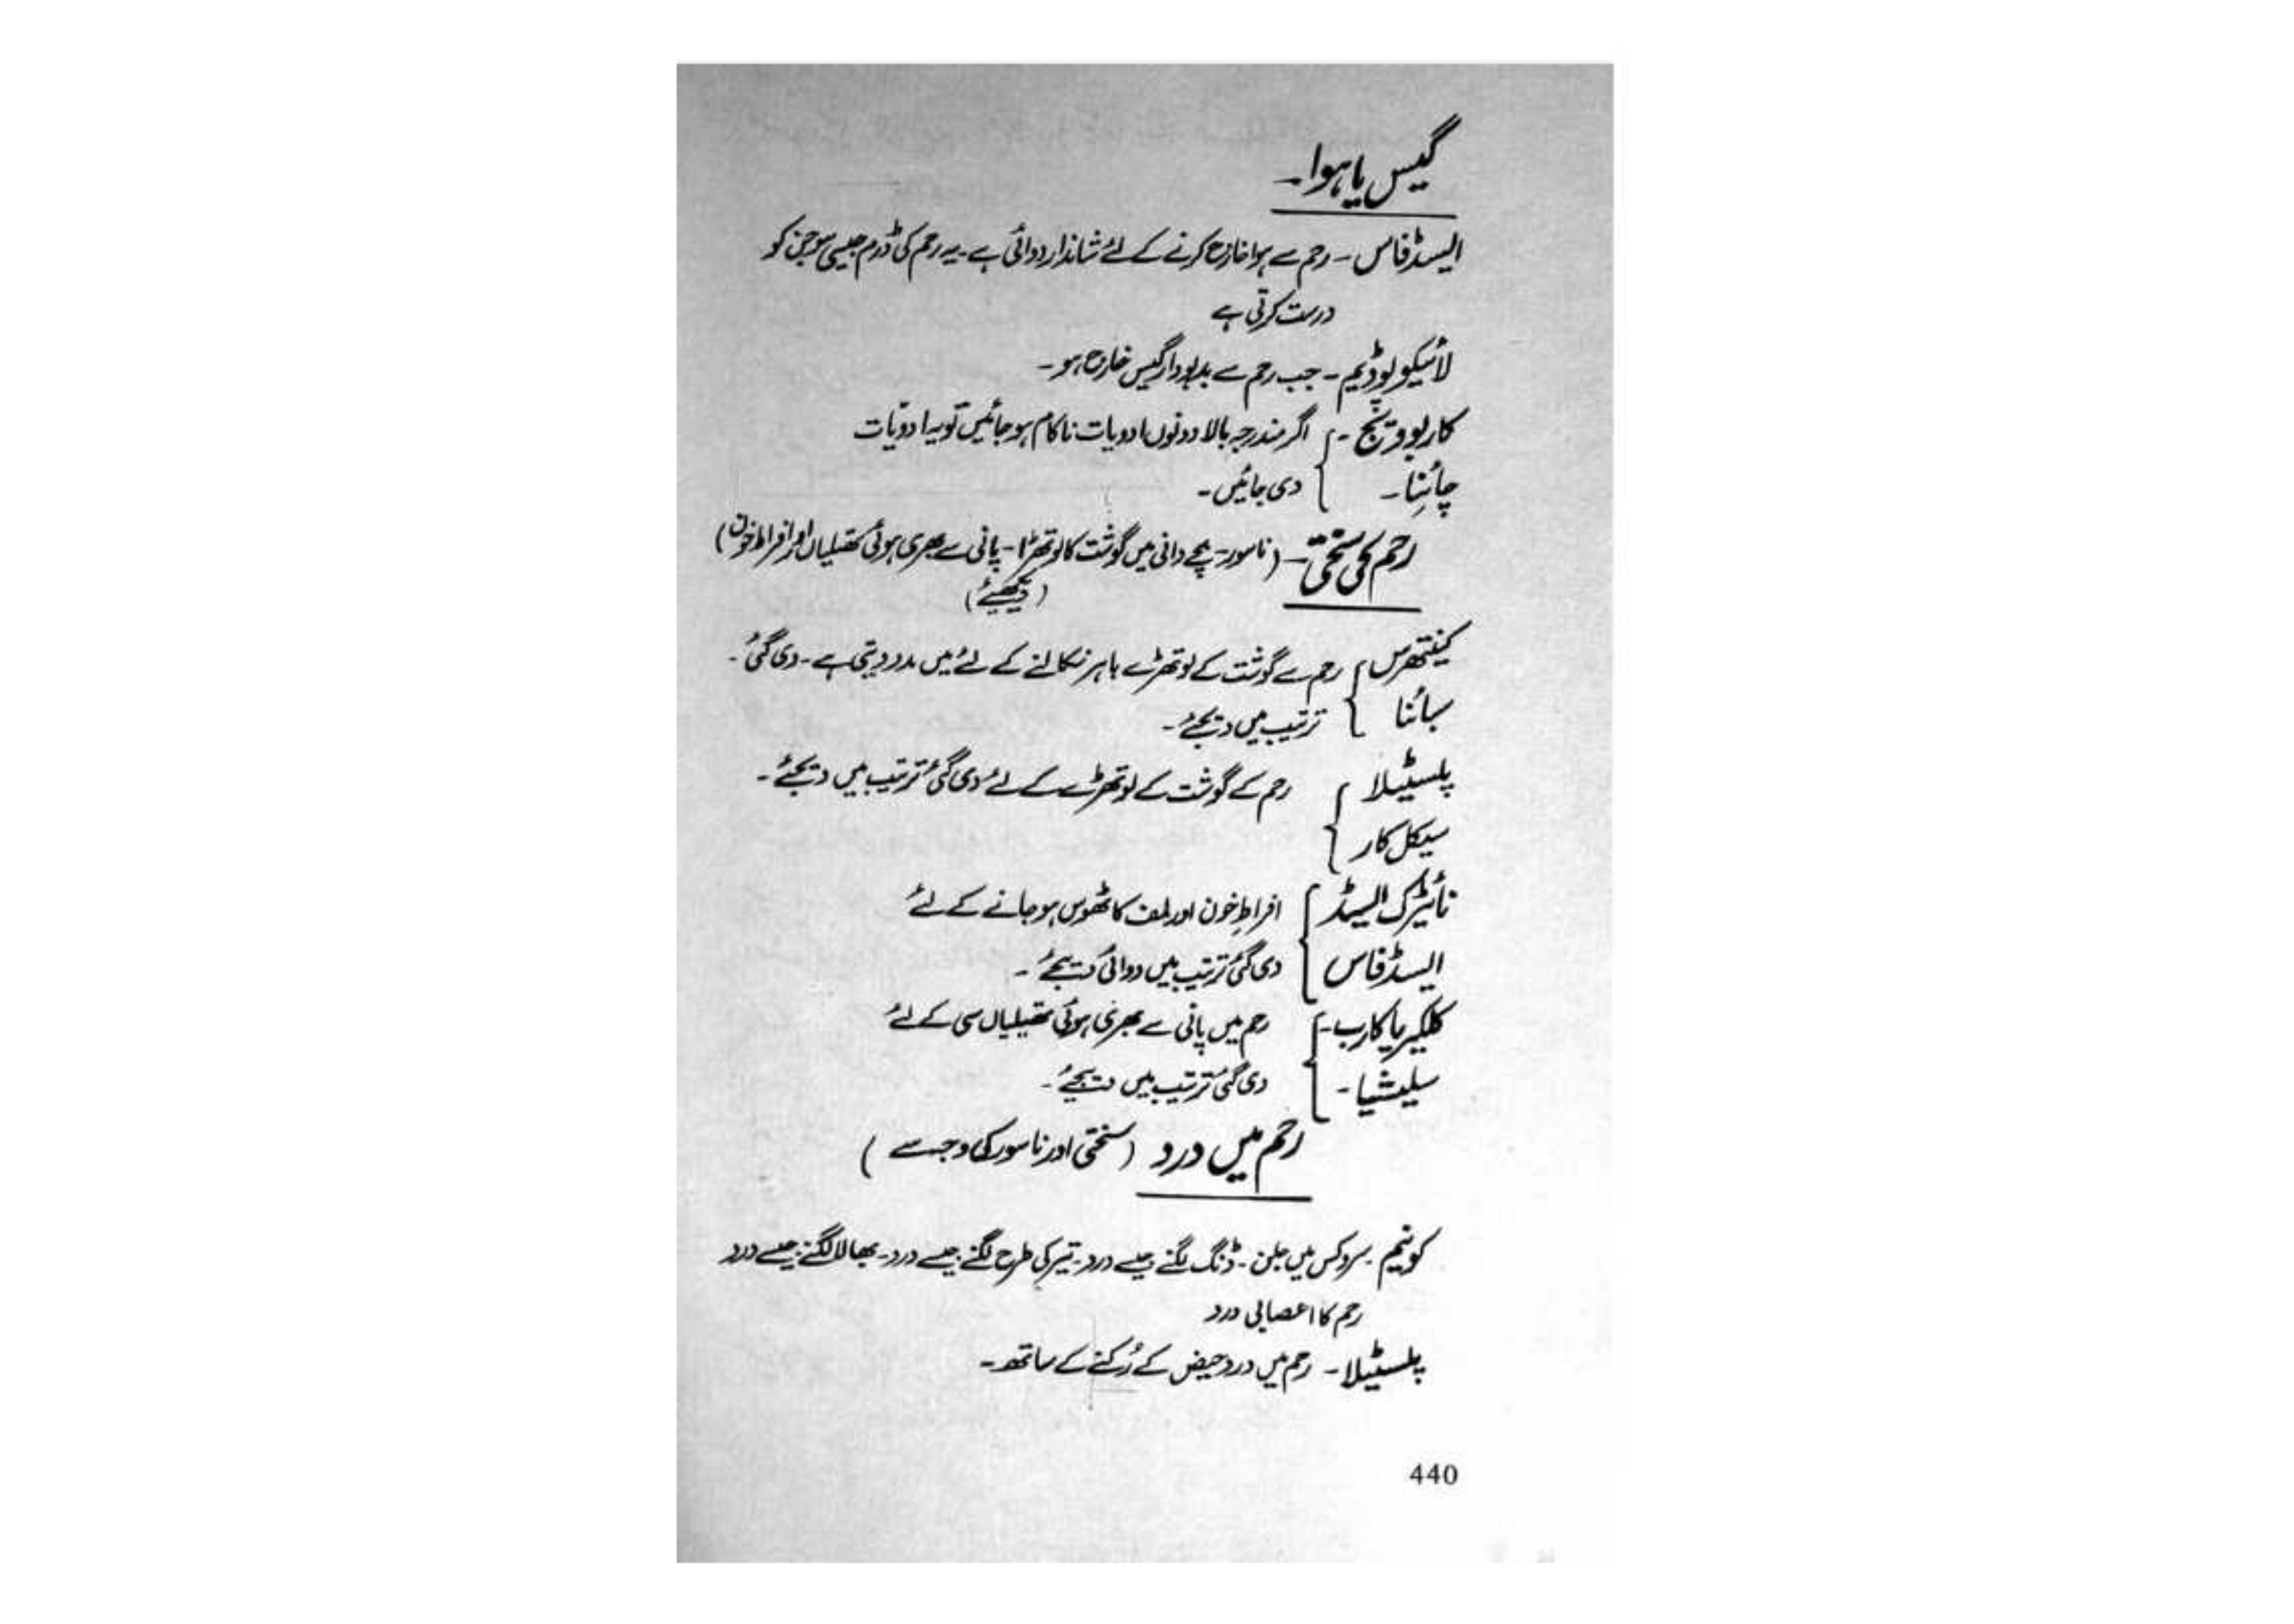 گیس یا ہوا۔
ایسڈ فاس - رحم سے ہوا خارج کرنے کے لئے شاندار دوائی ہے۔ یہ رحم کی ڈرم جیسی سوجن کو
درست کرتی ہے
لائیکوپوڈیم - جب رحم سے بدبودار گیس خارج ہو۔
کاربو ویج - { اگر مندرجہ بالا دونوں ادویات ناکام ہو جائیں تو یہ ادویات
چائنا - { دی جائیں۔
رحم کی سختی - (ناسور - بچے دانی میں گوشت کا لوتھڑا - پانی سے بھری ہوئی تھیلیاں اور افراط خون)
(دیکھیئے)
کینتھرس { رحم سے گوشت کے لوتھڑے باہر نکالنے کے لئے میں مدد دیتی ہے - دی گئی۔
سبائنا { ترتیب میں دیجئے۔
پلسٹیلا { رحم کے گوشت کے لوتھڑے کے لئے دی گئی ترتیب میں دیجئے۔
سیکل کار
نائیٹرک ایسڈ { افراطِ خون اور لمف کا ٹھوس ہو جانے کے لئے
ایسڈ فاس { دی گئی ترتیب میں دوائی دیجئے۔
کلکیریا کارب - { رحم میں پانی سے بھری ہوئی تھیلیاں سی کے لئے
سلیشیا - { دی گئی ترتیب میں دیجیئے۔
رحم میں درد (سختی اور ناسور کی وجہ سے)
کونیم - سروکس میں جلن - ڈنگ لگنے جیسے درد - تیر کی طرح لگنے جیسے درد - بھالا لگنے جیسے درد
رحم کا اعصابی درد
پلسٹیلا - رحم میں درد حیض کے رُکنے کے ساتھ۔
440